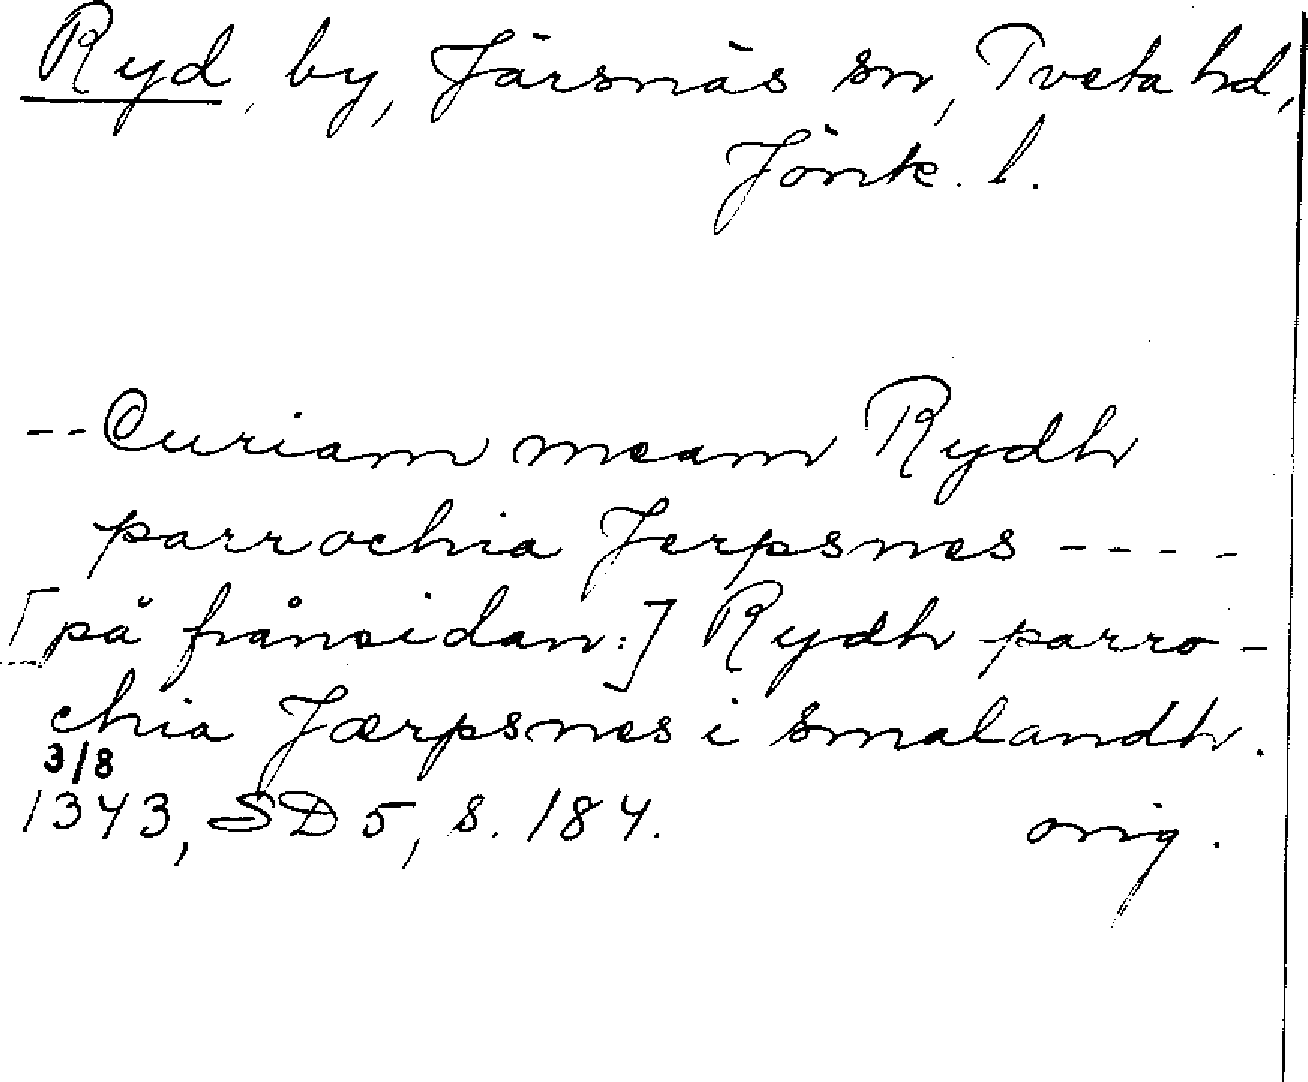 Ryd, by, Järsnäs sn, Tveta hd,
Jönk. l.
-- Curiam meam Rydh
parrochia Jerpsnes ----
[på frånsidan:] Rydh parro-
chia Jærpsnes i smalandh.
3/8
1343, SD 5, s. 184. orig.